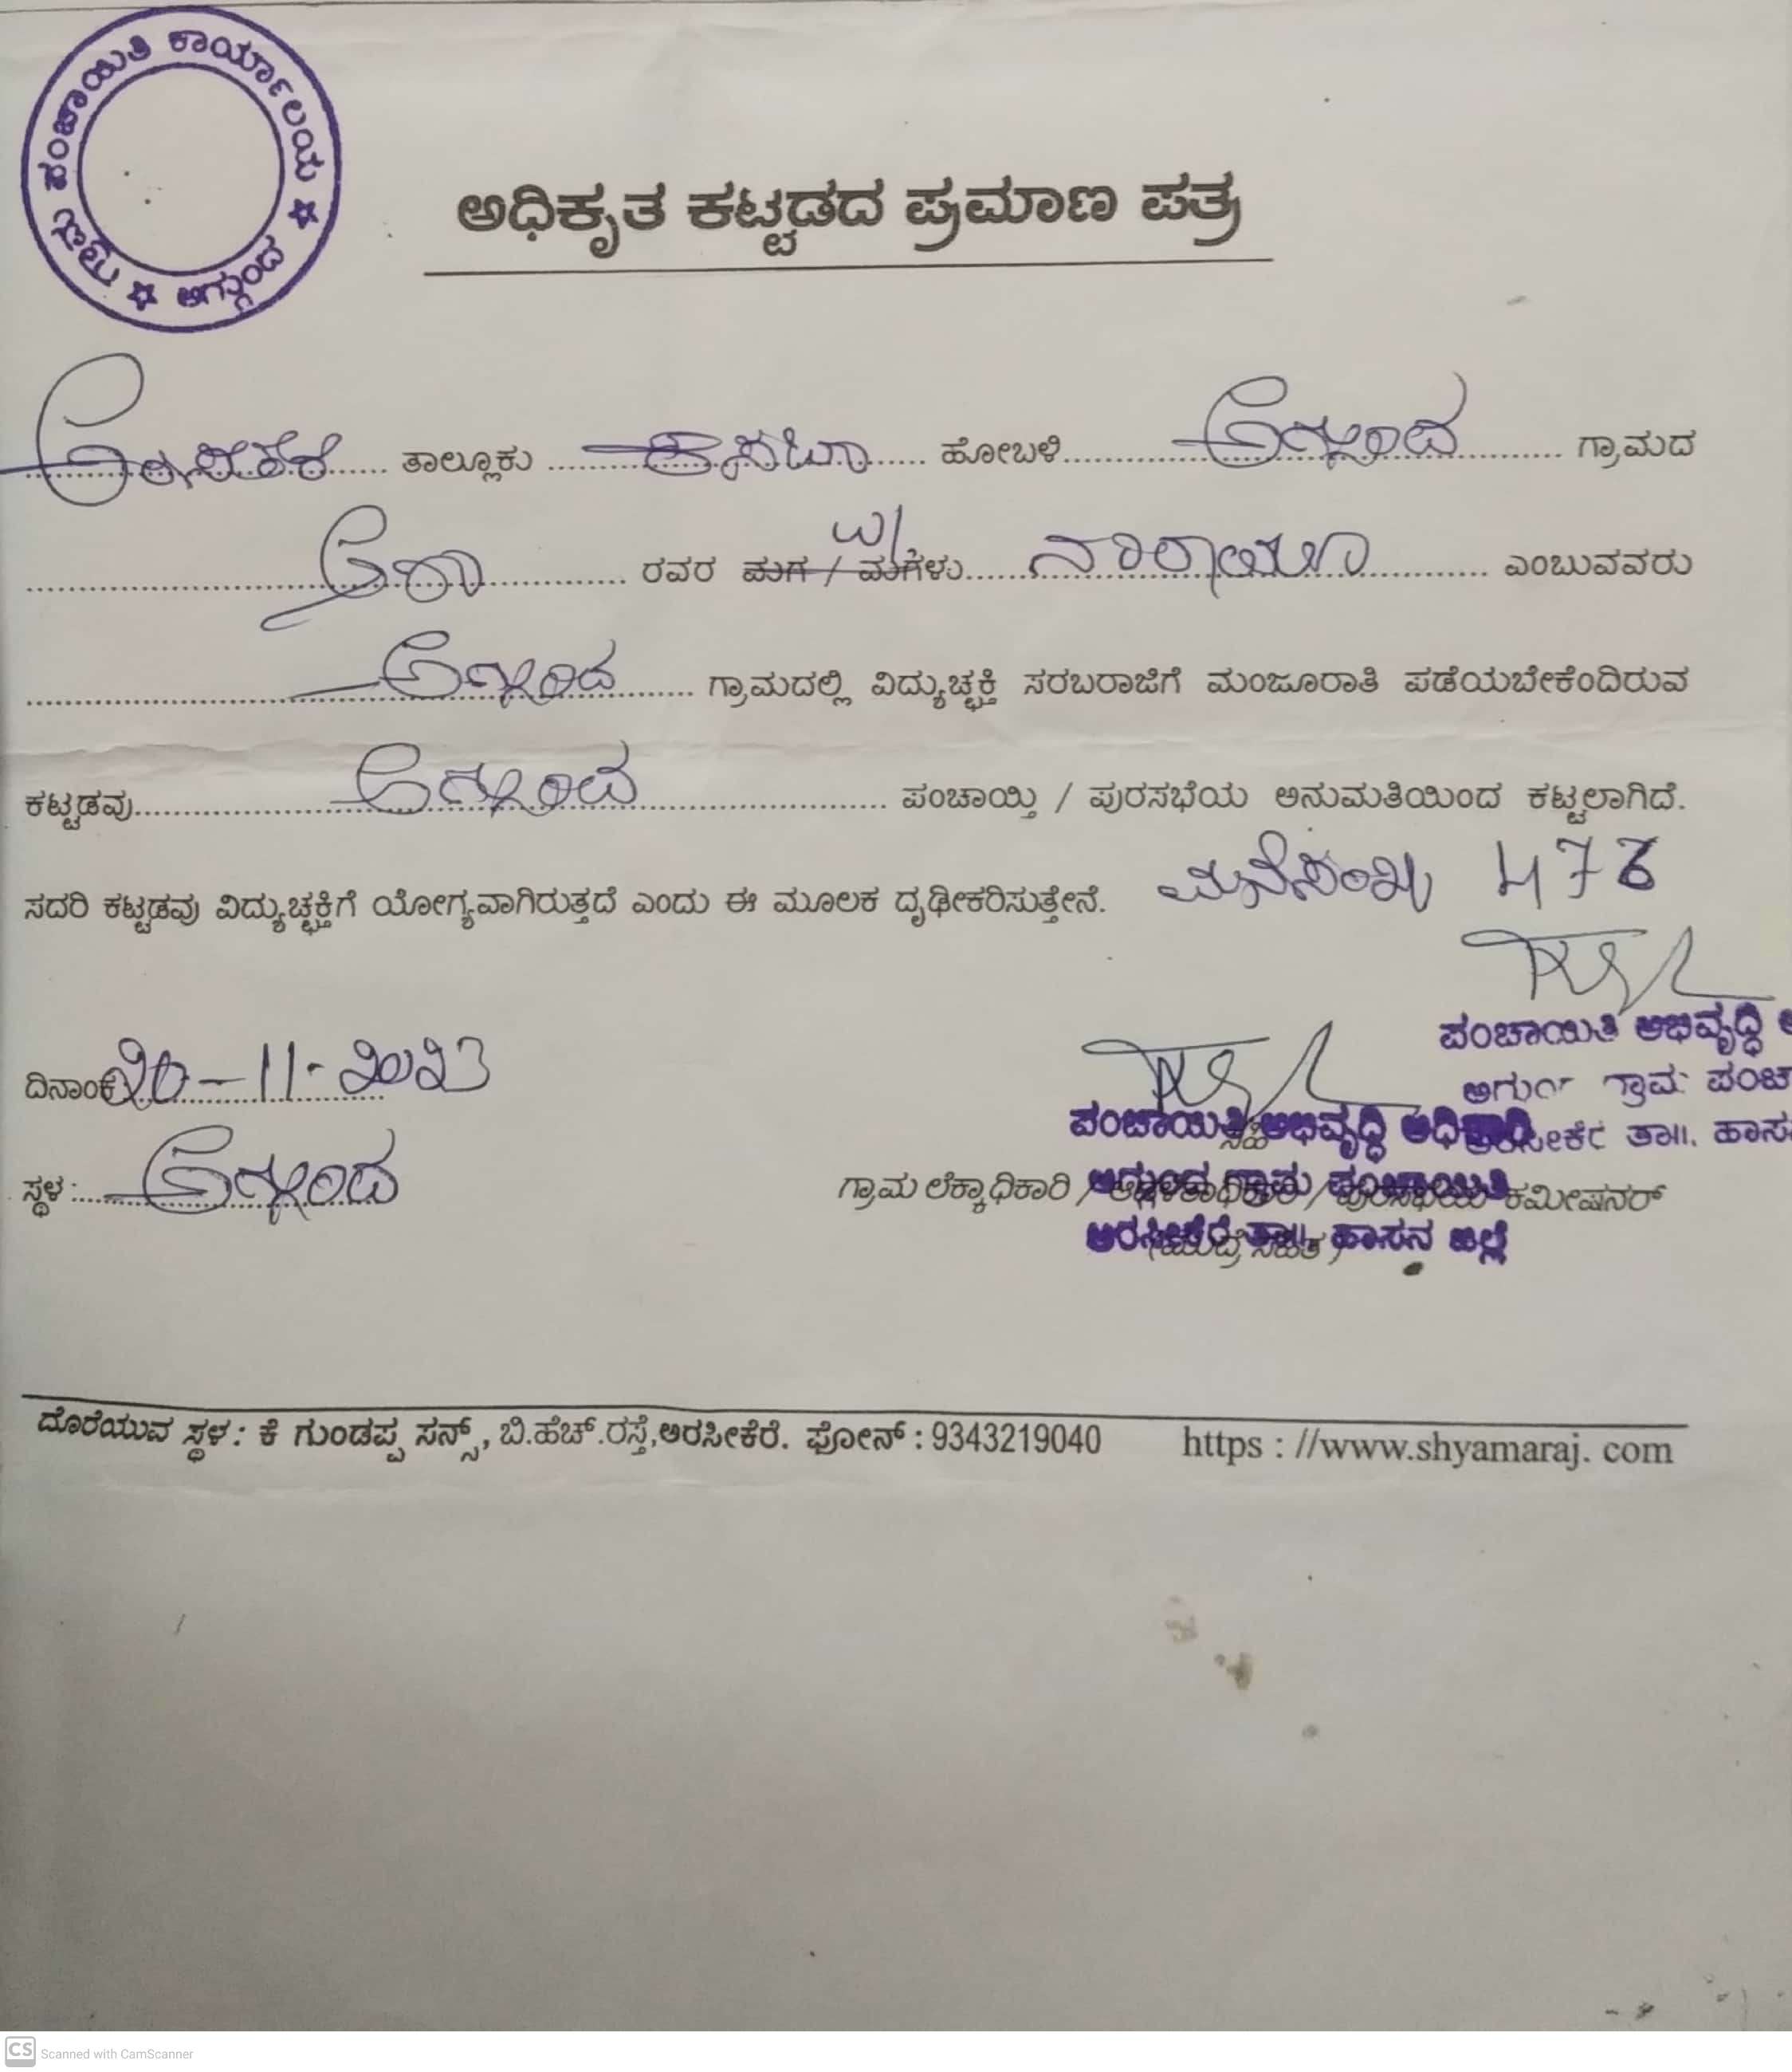 ಗ್ರಾಮ ಪಂಚಾಯಿತಿ ಕಾರ್ಯಾಲಯ ಅಗ್ಗುಂದ
ಅಧಿಕೃತ ಕಟ್ಟಡದ ಪ್ರಮಾಣ ಪತ್ರ
ಅರಸೀಕೆರೆ ತಾಲ್ಲೂಕು ಕಸಬಾ ಹೋಬಳಿ ಅಗ್ಗುಂದ ಗ್ರಾಮದ
ಆಶಾ ರವರ ಮಗ / ಮಗಳು W/ ನಾರಾಯಣ ಎಂಬುವವರು
ಅಗ್ಗುಂದ ಗ್ರಾಮದಲ್ಲಿ ವಿದ್ಯುಚ್ಛಕ್ತಿ ಸರಬರಾಜಿಗೆ ಮಂಜೂರಾತಿ ಪಡೆಯಬೇಕೆಂದಿರುವ
ಕಟ್ಟಡವು ಅಗ್ಗುಂದ ಪಂಚಾಯ್ತಿ / ಪುರಸಭೆಯ ಅನುಮತಿಯಿಂದ ಕಟ್ಟಲಾಗಿದೆ.
ಸದರಿ ಕಟ್ಟಡವು ವಿದ್ಯುಚ್ಛಕ್ತಿಗೆ ಯೋಗ್ಯವಾಗಿರುತ್ತದೆ ಎಂದು ಈ ಮೂಲಕ ದೃಢೀಕರಿಸುತ್ತೇನೆ. ಮನೆ ಸಂಖ್ಯೆ
ಪಂಚಾಯಿತಿ ಅಭಿವೃದ್ಧಿ
ಗ್ರಾಮ ಪಂಚಾ
ದಿನಾಂಕ 20-11-2023
ಪಂಚಾಯಿತಿ ಅಭಿವೃದ್ಧಿ ಅಧಿಕಾರಿ
ತಾ||. ಹಾಸ
ಸ್ಥಳ : ಅಗ್ಗುಂದ
ಗ್ರಾಮ ಲೆಕ್ಕಾಧಿಕಾರಿ / ಪುರಸಭೆಯ ಕಮೀಷನರ್
ಅಗ್ಗುಂದ ಗ್ರಾಮ ಪಂಚಾಯಿತಿ
ಅರಸೀಕೆರೆ ತಾ||. ಹಾಸನ ಜಿಲ್ಲೆ
(ಮುದ್ರೆ ಸಹಿತ)
ದೊರೆಯುವ ಸ್ಥಳ : ಕೆ ಗುಂಡಪ್ಪ ಸನ್ಸ್, ಬಿ.ಹೆಚ್.ರಸ್ತೆ,ಅರಸೀಕೆರೆ. ಫೋನ್ : 9343219040 https : //www.shyamaraj. com
CS Scanned with CamScanner